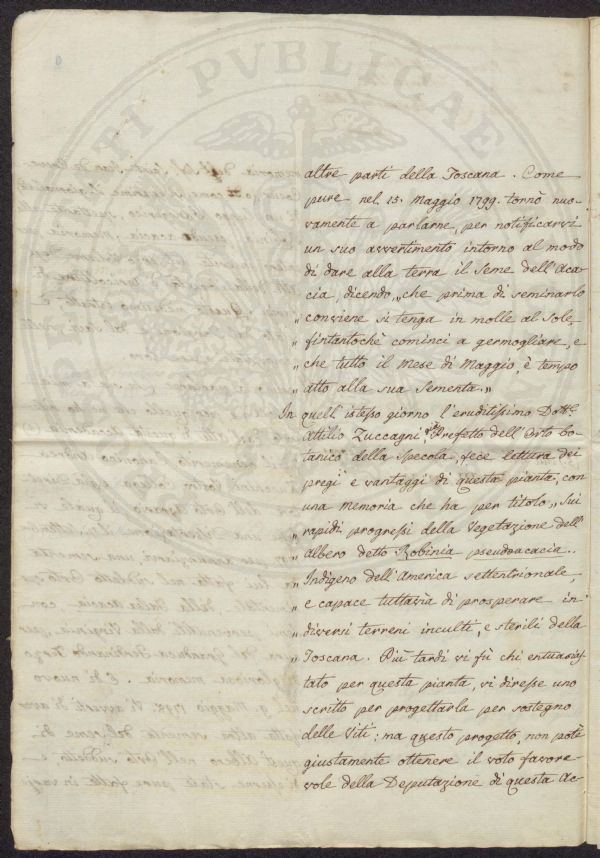 PROSPERITATI PVBLICAE
altre parti della Toscana. Come
pure nel 15. Maggio 1799. tornò nuo-
vamente a parlarne, per notificarvi
un suo avvertimento intorno al modo
di dare alla terra il seme dell'Aca-
cia, dicendo „che prima di seminarlo
„conviene si tenga in molle al Sole,
„fintantochè cominci a germogliare, e
„che tutto il Mese di Maggio, è tempo
„atto alla sua sementa.„
In quell'istesso giorno l'eruditissimo Dott.e
Attilio Zuccagni, Prefetto dell'Orto Bo-
tanico della Specola, fece lettura dei
pregi e vantaggi di questa pianta, con
una memoria che ha per titolo „Sui
„rapidi progressi della Vegetazione dell'
„albero detto Robinia pseudoacacia..
„Indigeno dell'America settentrionale,
„e capace tuttavia di prosperare in
„diversi terreni inculti, e sterili della
„Toscana. Più tardi vi fù chi entusias-
tato per questa pianta, vi diresse uno
scritto per progettarla per sostegno
delle Viti: ma questo progetto, non potè
giustamente ottenere il voto favore-
vole della Deputazione di questa Ac-